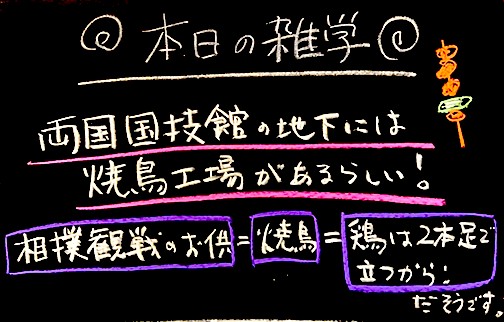 本日の雑学
両国国技館の地下には
焼鳥工場があるらしい!
相撲観戦のお供=焼鳥=鶏は2本足で
立つから!
だそうです。